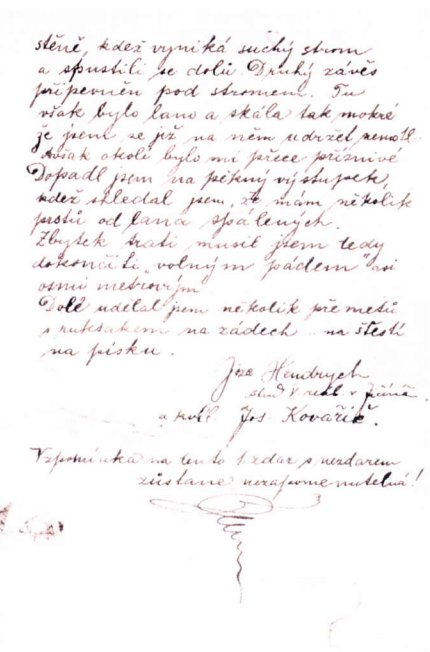 stěně, kdež vyniká suchý strom
a spustili se dolů. Druhý závěs
připevněn pod stromem. Tu
však bylo lano a skála tak mokré
že jsem se již na něm udržet nemohl.
Avšak okolí bylo mi přece příznivé
Dopadl jsem na pěkný výstupek,
kdež shledal jsem, že mám několik
prstů od lana spálených.
Zbytek trati musil jsem tedy
dokončiti „volným pádem" asi
osmi metrovým
Dole udělal jsem několik přemetů
s ruksakem na zádech .. na štěstí
na písku.
Jos. Hendrych
stud. V. real. v Jičíně.
a Jos. Kovařík.
Vzpomínka na tento 1. zdar s nezdarem
zůstane nezapomenutelná!